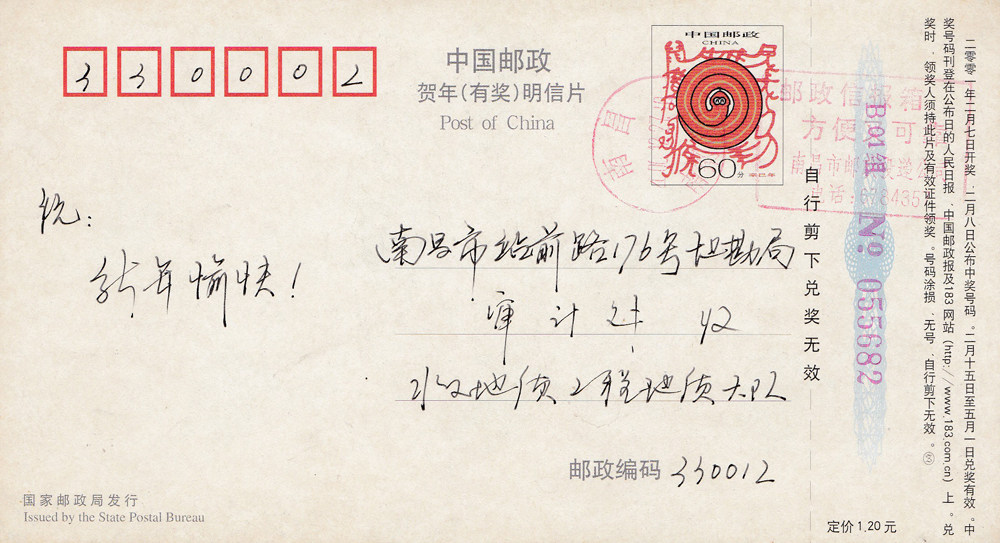 330002
中国邮政
贺年(有奖)明信片
Post of China
中国邮政
CHINA
60分
辛巳年
南昌
邮政信报箱
方便
可
南昌市邮
电话:
祝:
新年愉快!
南昌市站前路176号地勘局
审计处 收
水文地质工程地质大队
邮政编码 330012
国家邮政局发行
Issued by the State Postal Bureau
自行剪下兑奖无效
定价1.20元
B01组 No 055682
二零零一年二月七日开奖.二月八日公布中奖号码.二月十五日至五月一日兑奖有效。中
奖号码刊登在公布日的人民日报.中国邮政报及183网站(http://www.183.com.cn)上。兑
奖时.领奖人须持此片及有效证件领奖。号码涂损.无号.自行剪下无效。③